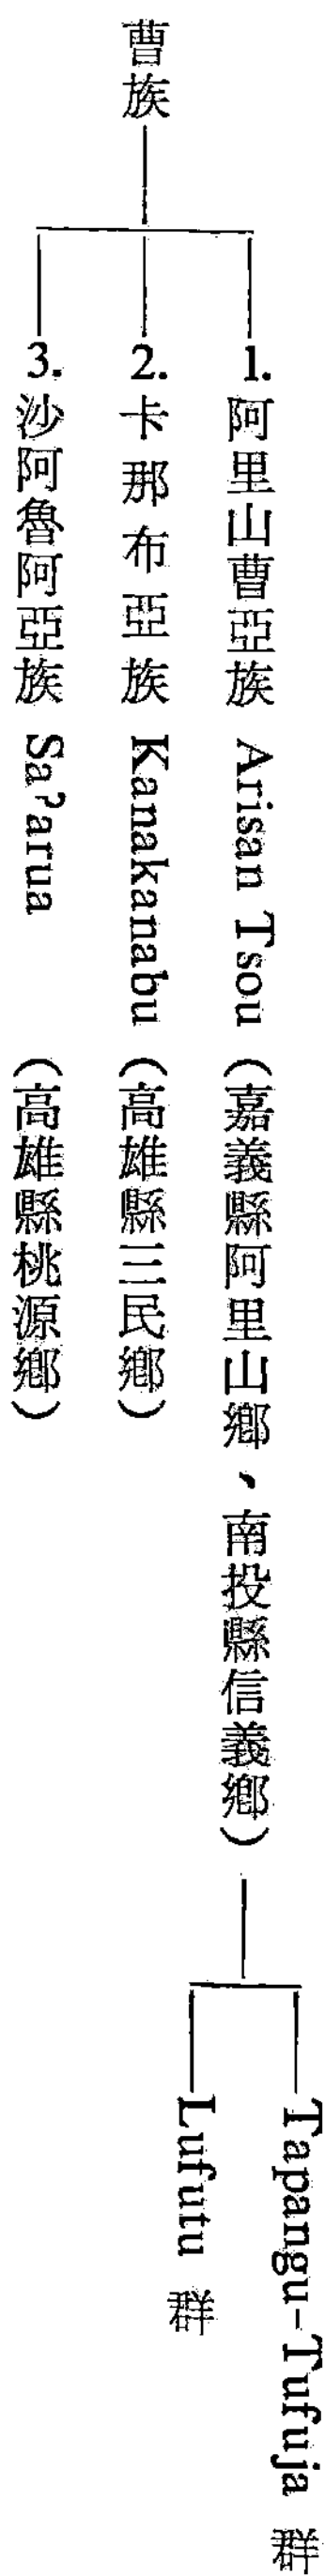 曹族
1. 阿里山曹亞族 Arisan Tsou (嘉義縣阿里山鄉、南投縣信義鄉)
Tapangu-Tufuja 群
Lufutu 群
2. 卡那布亞族 Kanakanabu (高雄縣三民鄉)
3. 沙阿魯阿亞族 Saˀarua (高雄縣桃源鄉)